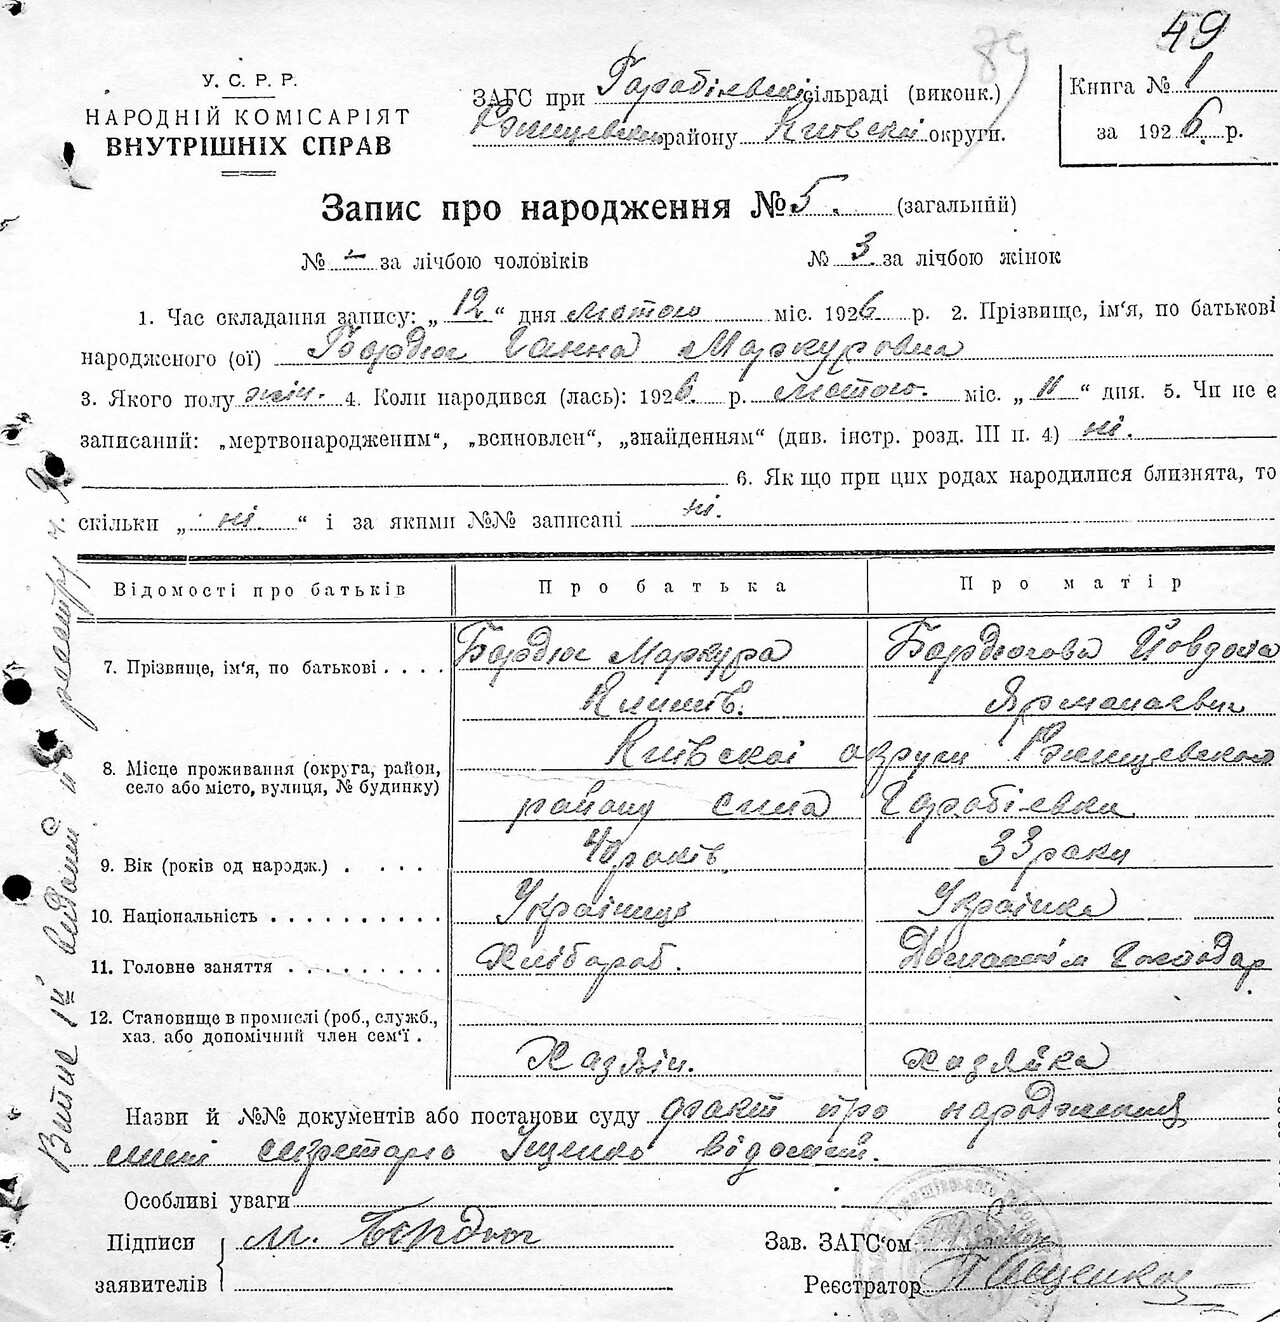 49
89
У. С. Р. Р.
НАРОДНІЙ КОМІСАРІЯТ
ВНУТРІШНІХ СПРАВ
ЗАГС при Горобіевскі сільраді (виконк.)
Ржищевскои району Київскоі округи.
Книга № 1
за 1926 р.
Запис про народження № 5. (загальний)
№ - за лічбою чоловіків № 3 за лічбою жінок
1. Час складання запису: „12“ дня лютого міс. 1926 р. 2. Прізвище, ім'я, по батькові
народженого (ої) Бардюг Ганна Маркуровна
3. Якого полу жін. 4. Коли народився (лась): 1926 р. лютого. міс. „11“ дня. 5. Чи не є
записаний: „мертвонародженим“, „всиновлен“, „знайденням“ (див. інстр. розд. III п. 4) ні.
6. Як що при цих родах народилися близнята, то
скільки „ні.“ і за якими №№ записані ні.
Відомості про батьків Про батька Про матір
7. Прізвище, ім'я, по батькові . . . . Бардюг Маркура Бардюгова Йовдоха
Климів. Ярмолаєвн
8. Місце проживання (округа, район,
село або місто, вулиця, № будинку)
Київскоі округи Ржищевского
району сила Горобіевки
9. Вік (років од народж.) . . . . . 40 років 33 роки
10. Національність . . . . . . . . . . Українищ Українка
11. Головне заняття . . . . . . . . . Хлібороб. Домашнія Господар
12. Становище в промислі (роб., служб.,
хаз. або допомічний член сем'ї . Хазяін. хазяйка
Назви й №№ документів або постанови суду факт про народження
мині секретарю Іщенко відомий.
Особливі уваги
Підписи заявителів М. Бардюг
Зав. ЗАГС'ом
Реєстратор Іщенко
Витяг 1й виданий